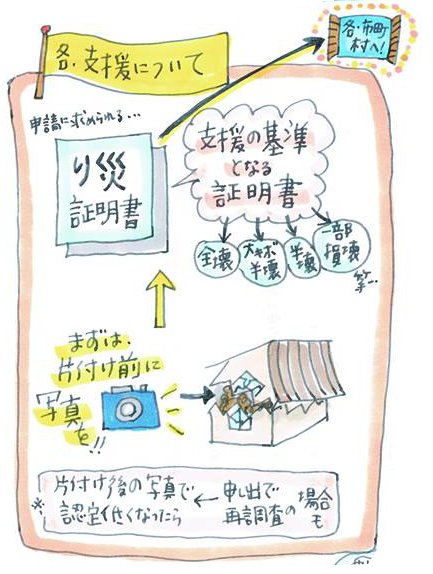 各・支援について
各・市町
村へ!
申請に求められる…
り災
証明書
支援の基準
となる
証明書
全壊
大キボ
半壊
半壊
一部
損壊
等…
まずは、
片付け前に
写真
を!!
※片付け後の写真で
認定低くなったら
←申し出で
再調査の場合
も